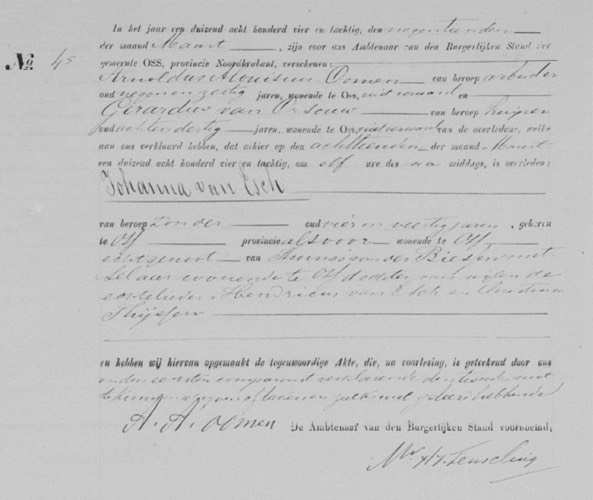 In het jaar een duizend acht honderd vier en tachtig, den negentienden
der maand Maart, zijn voor ons Ambtenaar van den Burgerlijken Stand der
No 45
gemeente OSS, provincie Noordbrabant, verschenen:
Arnoldus Aloisius Oomen van beroep arbeider
oud jaren, wonende te Oss, niet verwant en
Gerardus van Orsouw van beroep kuiper
oud achtendertig jaren, wonende te Oss, niet verwant van de overledene, welke
aan ons verklaard hebben, dat alhier op den achttienden der maand Maart
een duizend acht honderd vier en tachtig, om elf ure des middags, is overleden:
Johanna van Esch
van beroep zonder oud vier en veertig jaren, geboren
te Oss provincie alsvoor wonende te Oss
echtgenoot van Thomas van der Biesen met
wonende te Oss dochter van wijlen de
echtelieden Hendricus van Esch en
Thijssen
en hebben wij hiervan opgemaakt de tegenwoordige Akte, die, na voorlezing, is geteekend door ons
en den eersten comparant verklarende de tweede niet
te kunnen
A. A. Oomen De Ambtenaar van den Burgerlijken Stand voornoemd,